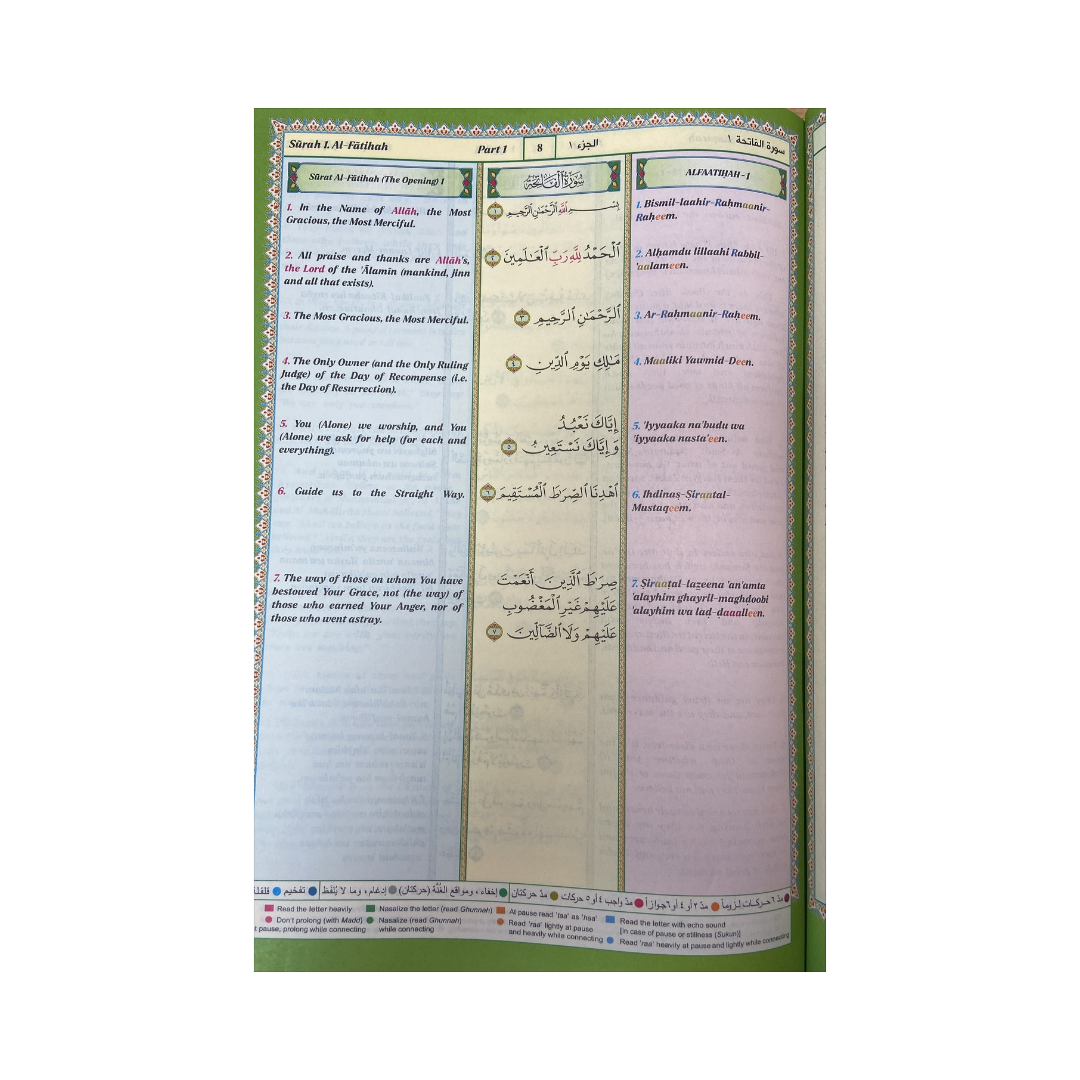 Sūrah 1. Al-Fātihah
Part 1
8
الجزء ١
سورة الفاتحة ١
Sūrat Al-Fātihah (The Opening) 1
1. In the Name of Allāh, the Most
Gracious, the Most Merciful.
2. All praise and thanks are Allāh's,
the Lord of the 'Ālamīn (mankind, jinn
and all that exists).
3. The Most Gracious, the Most Merciful.
4. The Only Owner (and the Only Ruling
Judge) of the Day of Recompense (i.e.
the Day of Resurrection).
5. You (Alone) we worship, and You
(Alone) we ask for help (for each and
everything).
6. Guide us to the Straight Way.
7. The way of those on whom You have
bestowed Your Grace, not (the way) of
those who earned Your Anger, nor of
those who went astray.
سُورَةُ الفَاتِحَةِ
بِسْمِ ٱللَّهِ ٱلرَّحْمَٰنِ ٱلرَّحِيمِ ١
ٱلْحَمْدُ لِلَّهِ رَبِّ ٱلْعَٰلَمِينَ ٢
ٱلرَّحْمَٰنِ ٱلرَّحِيمِ ٣
مَٰلِكِ يَوْمِ ٱلدِّينِ ٤
إِيَّاكَ نَعْبُدُ
وَإِيَّاكَ نَسْتَعِينُ ٥
ٱهْدِنَا ٱلصِّرَٰطَ ٱلْمُسْتَقِيمَ ٦
صِرَٰطَ ٱلَّذِينَ أَنْعَمْتَ
عَلَيْهِمْ غَيْرِ ٱلْمَغْضُوبِ
عَلَيْهِمْ وَلَا ٱلضَّآلِّينَ ٧
ALFAATIḤAH - 1
1. Bismil-laahir-Raḥmaanir-
Raḥeem.
2. Alḥamdu lillaahi Rabbil-
'aalameen.
3. Ar-Raḥmaanir-Raḥeem.
4. Maaliki Yawmid-Deen.
5. 'Iyyaaka na'budu wa
'Iyyaaka nasta'een.
6. Ihdinaṣ-Ṣiraatal-
Mustaqeem.
7. Ṣiraatal-lazeena 'an'amta
'alayhim ghayril-maghḍoobi
'alayhim wa laḍ-ḍaaalleen.
مدّ ٦ حركات لزوماً مدّ ٢ أو ٤ أو ٦ جوازاً مدّ واجب ٤ أو ٥ حركات مدّ حركتان إخفاء، ومواقع الغُنَّة (حركتان) إدغام، وما لا يُلفَظ تفخيم قلقلة
Read the letter heavily
Don't prolong (with Madd)
t pause, prolong while connecting
Nasalize the letter (read Ghunnah)
Nasalize (read Ghunnah)
while connecting
At pause read 'taa' as 'haa'
Read 'raa' lightly at pause
and heavily while connecting
Read the letter with echo sound
[in case of pause or stillness (Sukun)]
Read 'raa' heavily at pause and lightly while connecting